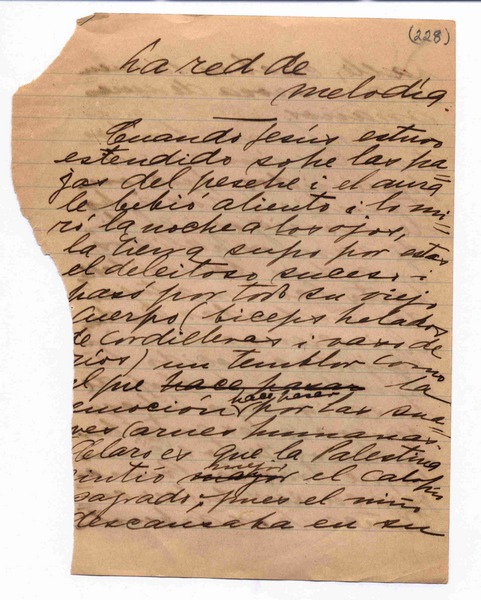 (228)
La red de
melodía.
Cuando Jesús estuvo
estendido sobre las pa=
jas del pesebre i el aura
le bebió aliento i lo mi=
ró la noche a los ojos,
la tierra supo por estas
el deleitoso suceso i
pasó por todo su viejo
cuerpo (biceps helados
de cordilleras i vasos de
ríos) un temblor como
el que hace pasar la
emoción por las sua=
ves carnes humanas.
Claro es que la Palestina
sintió mejor el calofrío
sagrado, pues el niño
descansaba en su